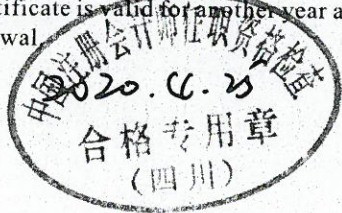 tificate is valid for another year a
wal.
中国注册会计师任职资格检查
2020.4.23
合格专用章
(四川)